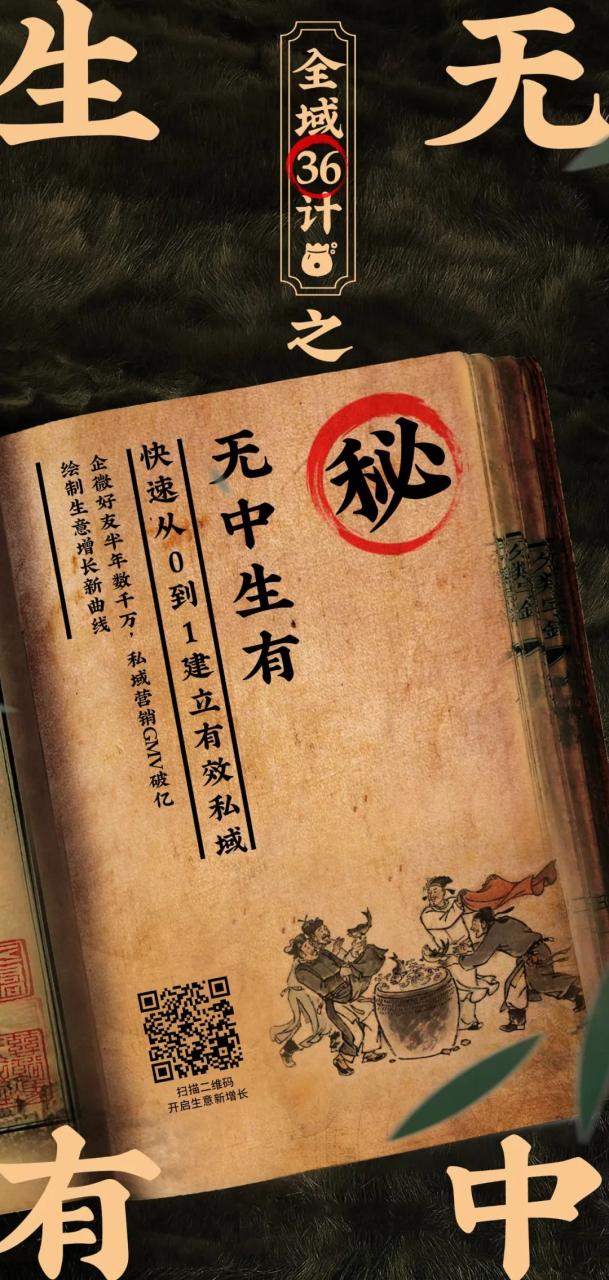 无
中
生
有
全域36计
之
秘
无中生有
快速从0到1建立有效私域
企微好友半年数千万，私域营销GMV破亿
绘制生意增长新曲线
扫描二维码
开启生意新增长